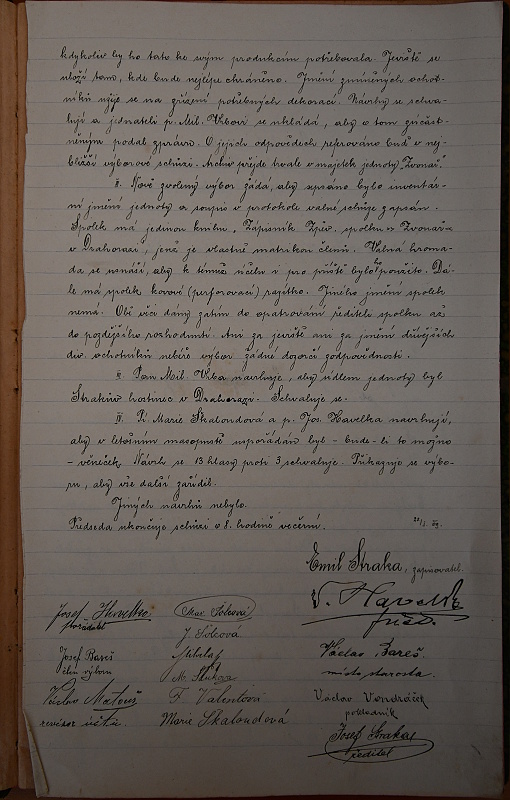 kdykoliv by ho tato ke svým produkcím potřebovala. Jeviště se
uloží tam, kde bude nejlépe chráněno. Jmění zmíněných ochot-
níků užije se na zřízení potřebných dekorací. Návrhy se schva-
lují a jednateli p. Mil. Vrbovi se ukládá, aby o tom zúčast-
něným podal zprávu. O jejich odpovědech referováno buď v nej-
bližší výborové schůzi. Archiv přejde trvale v majetek jednoty "Zvonař."
II. Nově zvolený výbor žádá, aby spsáno bylo inventár-
ní jmění jednoty a soupis v protokole valné schůze zapsán.
Spolek má jednou knihu, "Zápisník Zpěv. spolku "Zvonař"
v Drahorazi", jenž je vlastně matrikou členů. Valná hroma-
da se usnáší, aby k témuž účelu i pro příště bylo použito. Dá-
le má spolek kovové (perforovací) razítko. Jiného jmění spolek
nemá. Obě věci dány zatím do opatrování řediteli spolku až
do pozdějšího rozhodnutí. Ani za jeviště ani za jmění dřívějších
div. ochotníků nebéře výbor žádné dozorčí zodpovědnosti.
III. Pan Mil. Vrba navrhuje, aby sídlem jednoty byl
Strakův hostinec v Drahorazi. Schvaluje se.
IV. Sl. Marie Skaloudová a p. Jos. Havelka navrhují,
aby v letošním masopustě uspořádán byl - bude-li to možno
- věneček. Návrh se 13 hlasy proti 3 schvaluje. Přikazuje se výbo-
ru, aby vše další zařídil.
Jiných návrhů nebylo.
Předseda ukončuje schůzi o 8. hodině večerní.
Emil Straka, zapisovatel.
V. Havelka
před.
Josef Havelka
pořadatel
Mar. Šólcová
J. Šólcová
Josef Bareš
člen výboru
M. Stuková
Václav Bareš
místo starosta.
Václav Matouš
revisor účtů
F. Valentová
Marie Skaloudová
Václav Vondráček
pokladník
Josef Straka
ředitel